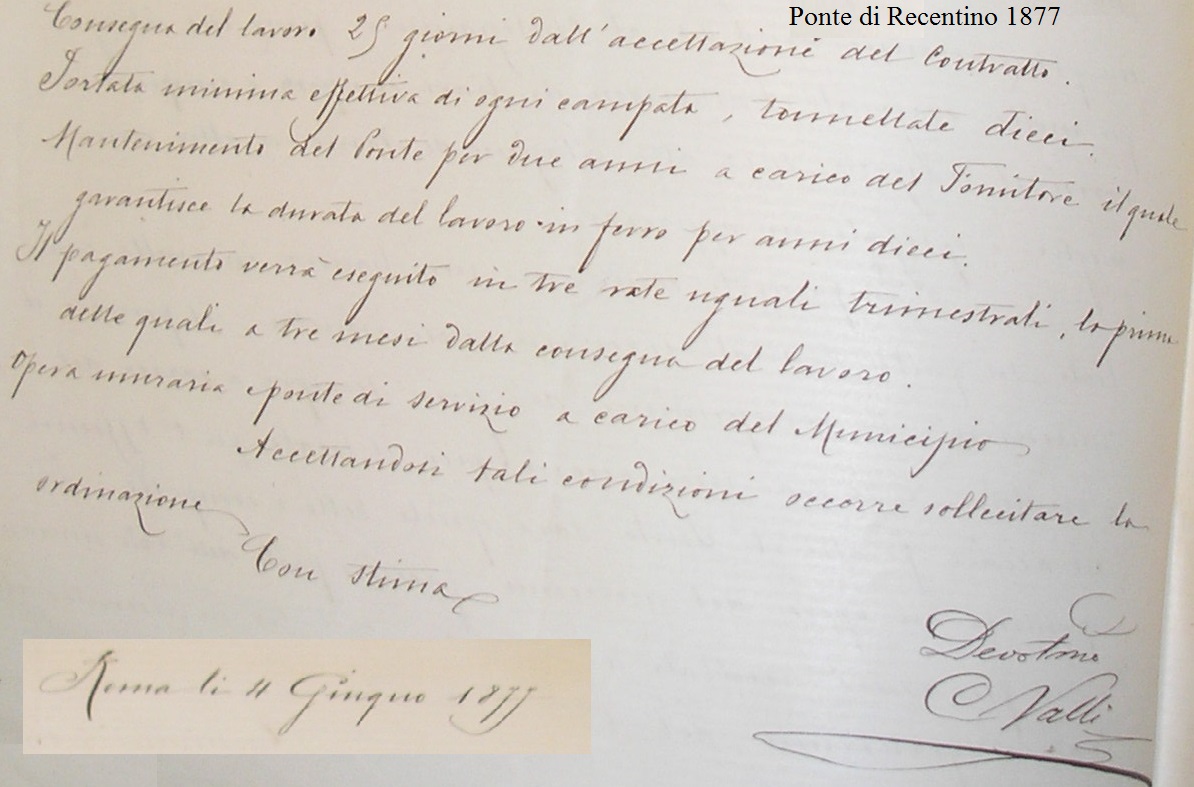 Ponte di Recentino 1877
Consegna del lavoro 25 giorni dall'accettazione del Contratto.
Portata minima effettiva di ogni campata, tonnellate dieci.
Mantenimento del Ponte per due anni a carico del Fornitore il quale
garantisce la durata del lavoro in ferro per anni dieci.
Il pagamento verrà eseguito in tre rate uguali trimestrali, la prima
delle quali a tre mesi dalla consegna del lavoro.
Opera muraria e ponte di servizio a carico del Municipio
Accettandosi tali condizioni occorre sollecitare la
ordinazione
Con stima
Devotmo
C Valli
Roma li 4 Giugno 1877